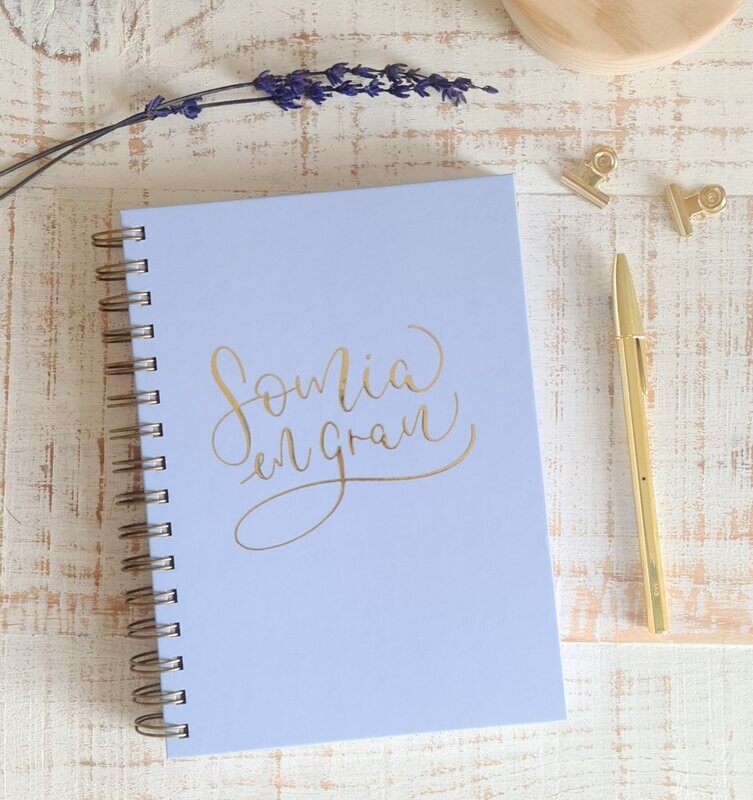 Somia
en gran